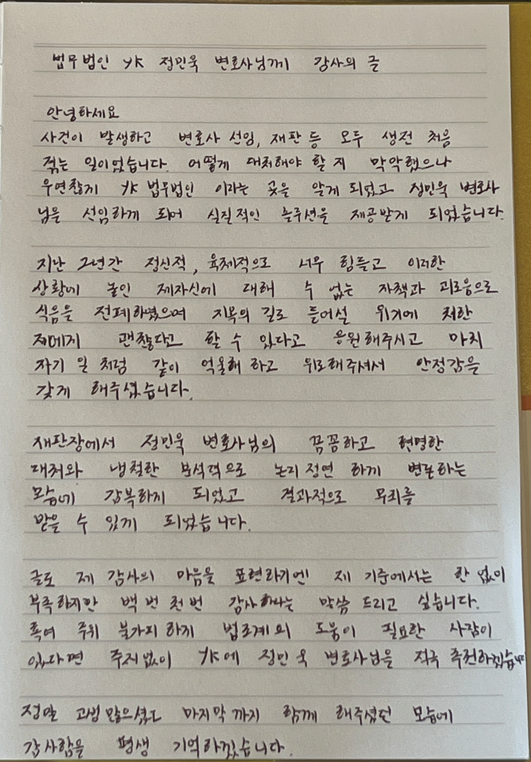 법무법인 YK 정민욱 변호사님께 감사의 글
안녕하세요
사건이 발생하고 변호사 선임, 재판 등 모두 생전 처음
겪는 일이었습니다 어떻게 대처해야 할 지 막막했으나
우연찮게 YK 법무법인 이라는 곳을 알게 되었고 정민욱 변호사
님을 선임하게 되어 실질적인 솔루션을 제공받게 되었습니다.
지난 2년간 정신적, 육체적으로 너무 힘들고 이러한
상황에 놓인 제자신에 대해 수 없는 자책과 괴로움으로
식음을 전폐하였으며 지옥의 길로 들어설 위기에 처한
저에게 괜찮다고 할 수 있다고 응원해주시고 마치
자기 일 처럼 같이 억울해 하고 위로해주셔서 안정감을
갖게 해주셨습니다.
재판장에서 정민욱 변호사님의 꼼꼼하고 현명한
대처와 냉철한 분석력으로 논리 정연 하게 변론하는
모습에 감복하게 되었고 결과적으로 무죄를
받을 수 있게 되었습니다.
글로 제 감사의 마음을 표현하기엔 제 기준에서는 한 없이
부족하지만 백 번 천 번 감사하다는 말씀 드리고 싶습니다.
혹여 주위 불가피 하게 법조계의 도움이 필요한 사람이
있다면 주저없이 YK에 정민욱 변호사님을 적극 추천하겠습니다
정말 고생 많으셨고 마지막까지 함께 해주셨던 모습에
감사함을 평생 기억하겠습니다.